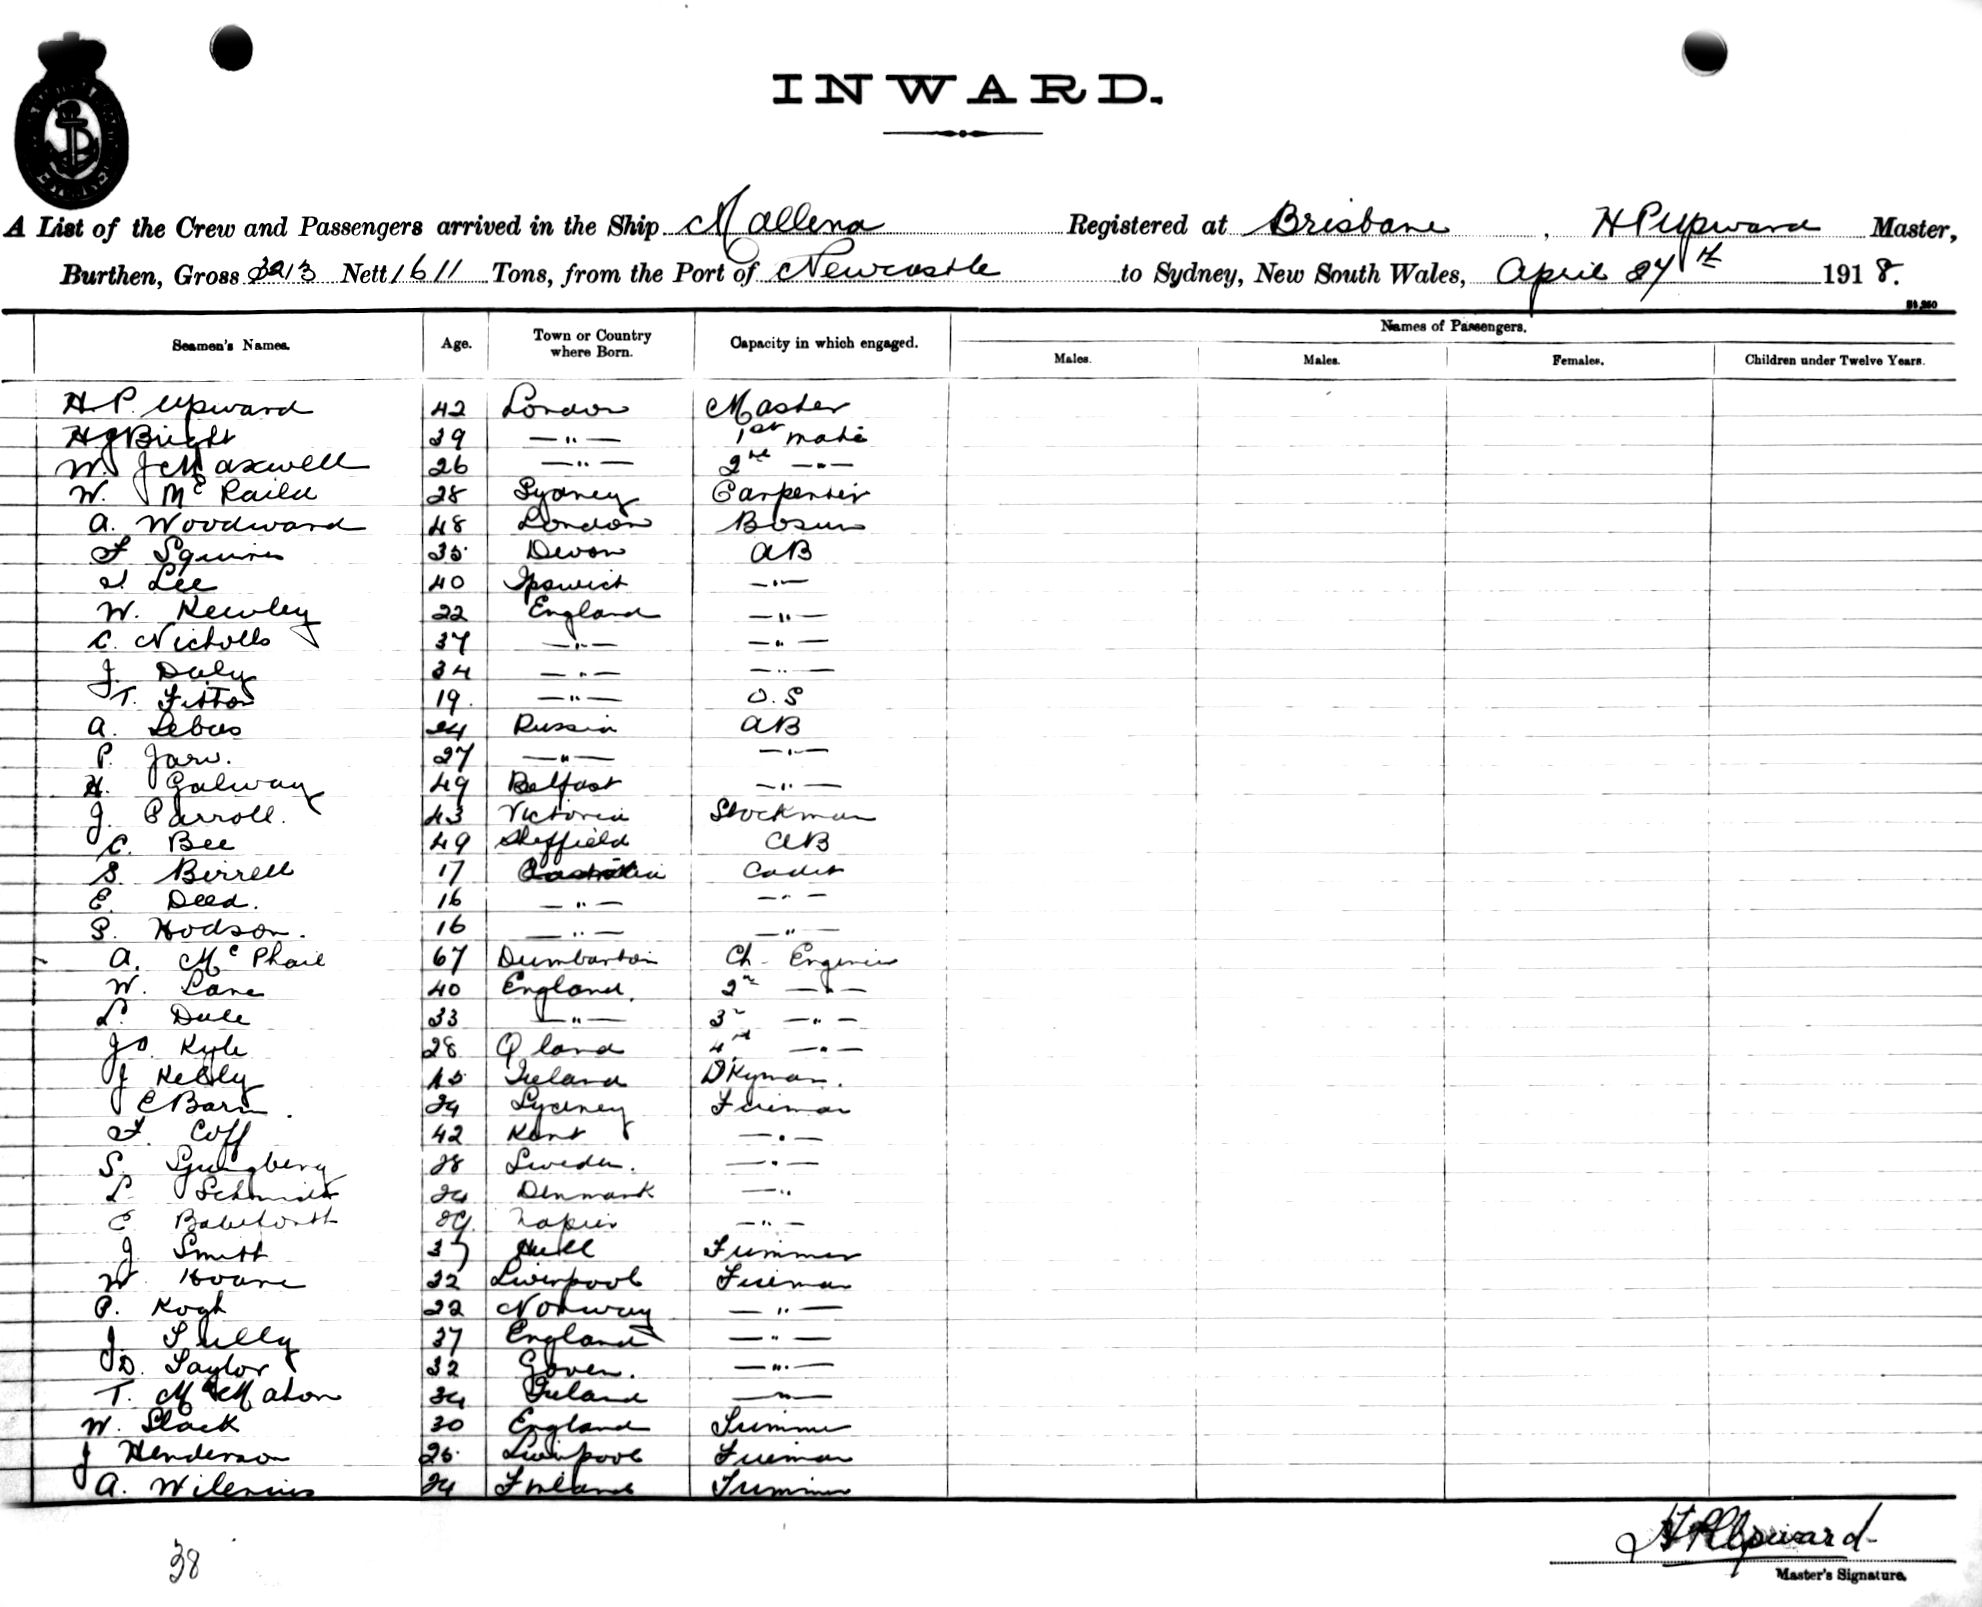 INWARD.
A List of the Crew and Passengers arrived in the Ship Mallena Registered at Brisbane, H P Upward Master,
Burthen, Gross 3213 Nett 1611 Tons, from the Port of Newcastle to Sydney, New South Wales, April 27th 1918.
Names of Passengers.
Seamen's Names. Age. Town or Country where Born. Capacity in which engaged. Males. Males. Females. Children under Twelve Years.
H P. Upward 42 London Master
H J Bright 39 —"— 1st mate
W. J Maxwell 26 —"— 2nd —"—
W. McRaild 28 Sydney Carpenter
A. Woodward 48 London Bosun
F Squires 35 Devon AB
Lee 40 Ipswich —"—
W. Kewley 22 England —"—
C. Nicholls 37 —"— —"—
J. Daly 34 —"— —"—
T. Fitton 19. —"— O.S
A. Lebus 24 Russia AB
P. Jarv. 27 —"— —"—
H. Galway 49 Belfast —"—
J. Carroll. 43 Victoria Stockman
C. Bee 49 Sheffield AB
S. Birrell 17 Australia Cadet
E. Deed. 16 —"— —"—
P. Hodson. 16 —"— —"—
A. McPhail 67 Dumbarton Ch. Engineer
W. Lane 40 England. 2n —"—
L. Dale 33 —"— 3r —"—
Jo. Kyle 28 Q land 4th —"—
J Kelly 45 Ireland DKyman.
C Barn. 24 Sydney Fireman
F. Coff 42 Kent —"—
S. Ljungberg 28 Sweden. —"—
L Schmidt 24 Denmark —"
E 29. Napier —"—
J Smith 37 Hull Trimmer
W Hoare 32 Liverpool Fireman
P. Kogh 22 Norway —"—
J. Tully 37 England —"—
D. Taylor 32 Goven. —"—
T. McMahon 34 Ireland —"—
W. Slack 30 England Trimmer
J Henderson 25 Liverpool Fireman
A. Wilenius 24 Finland Trimmer
38
H P Upward
Master's Signature.